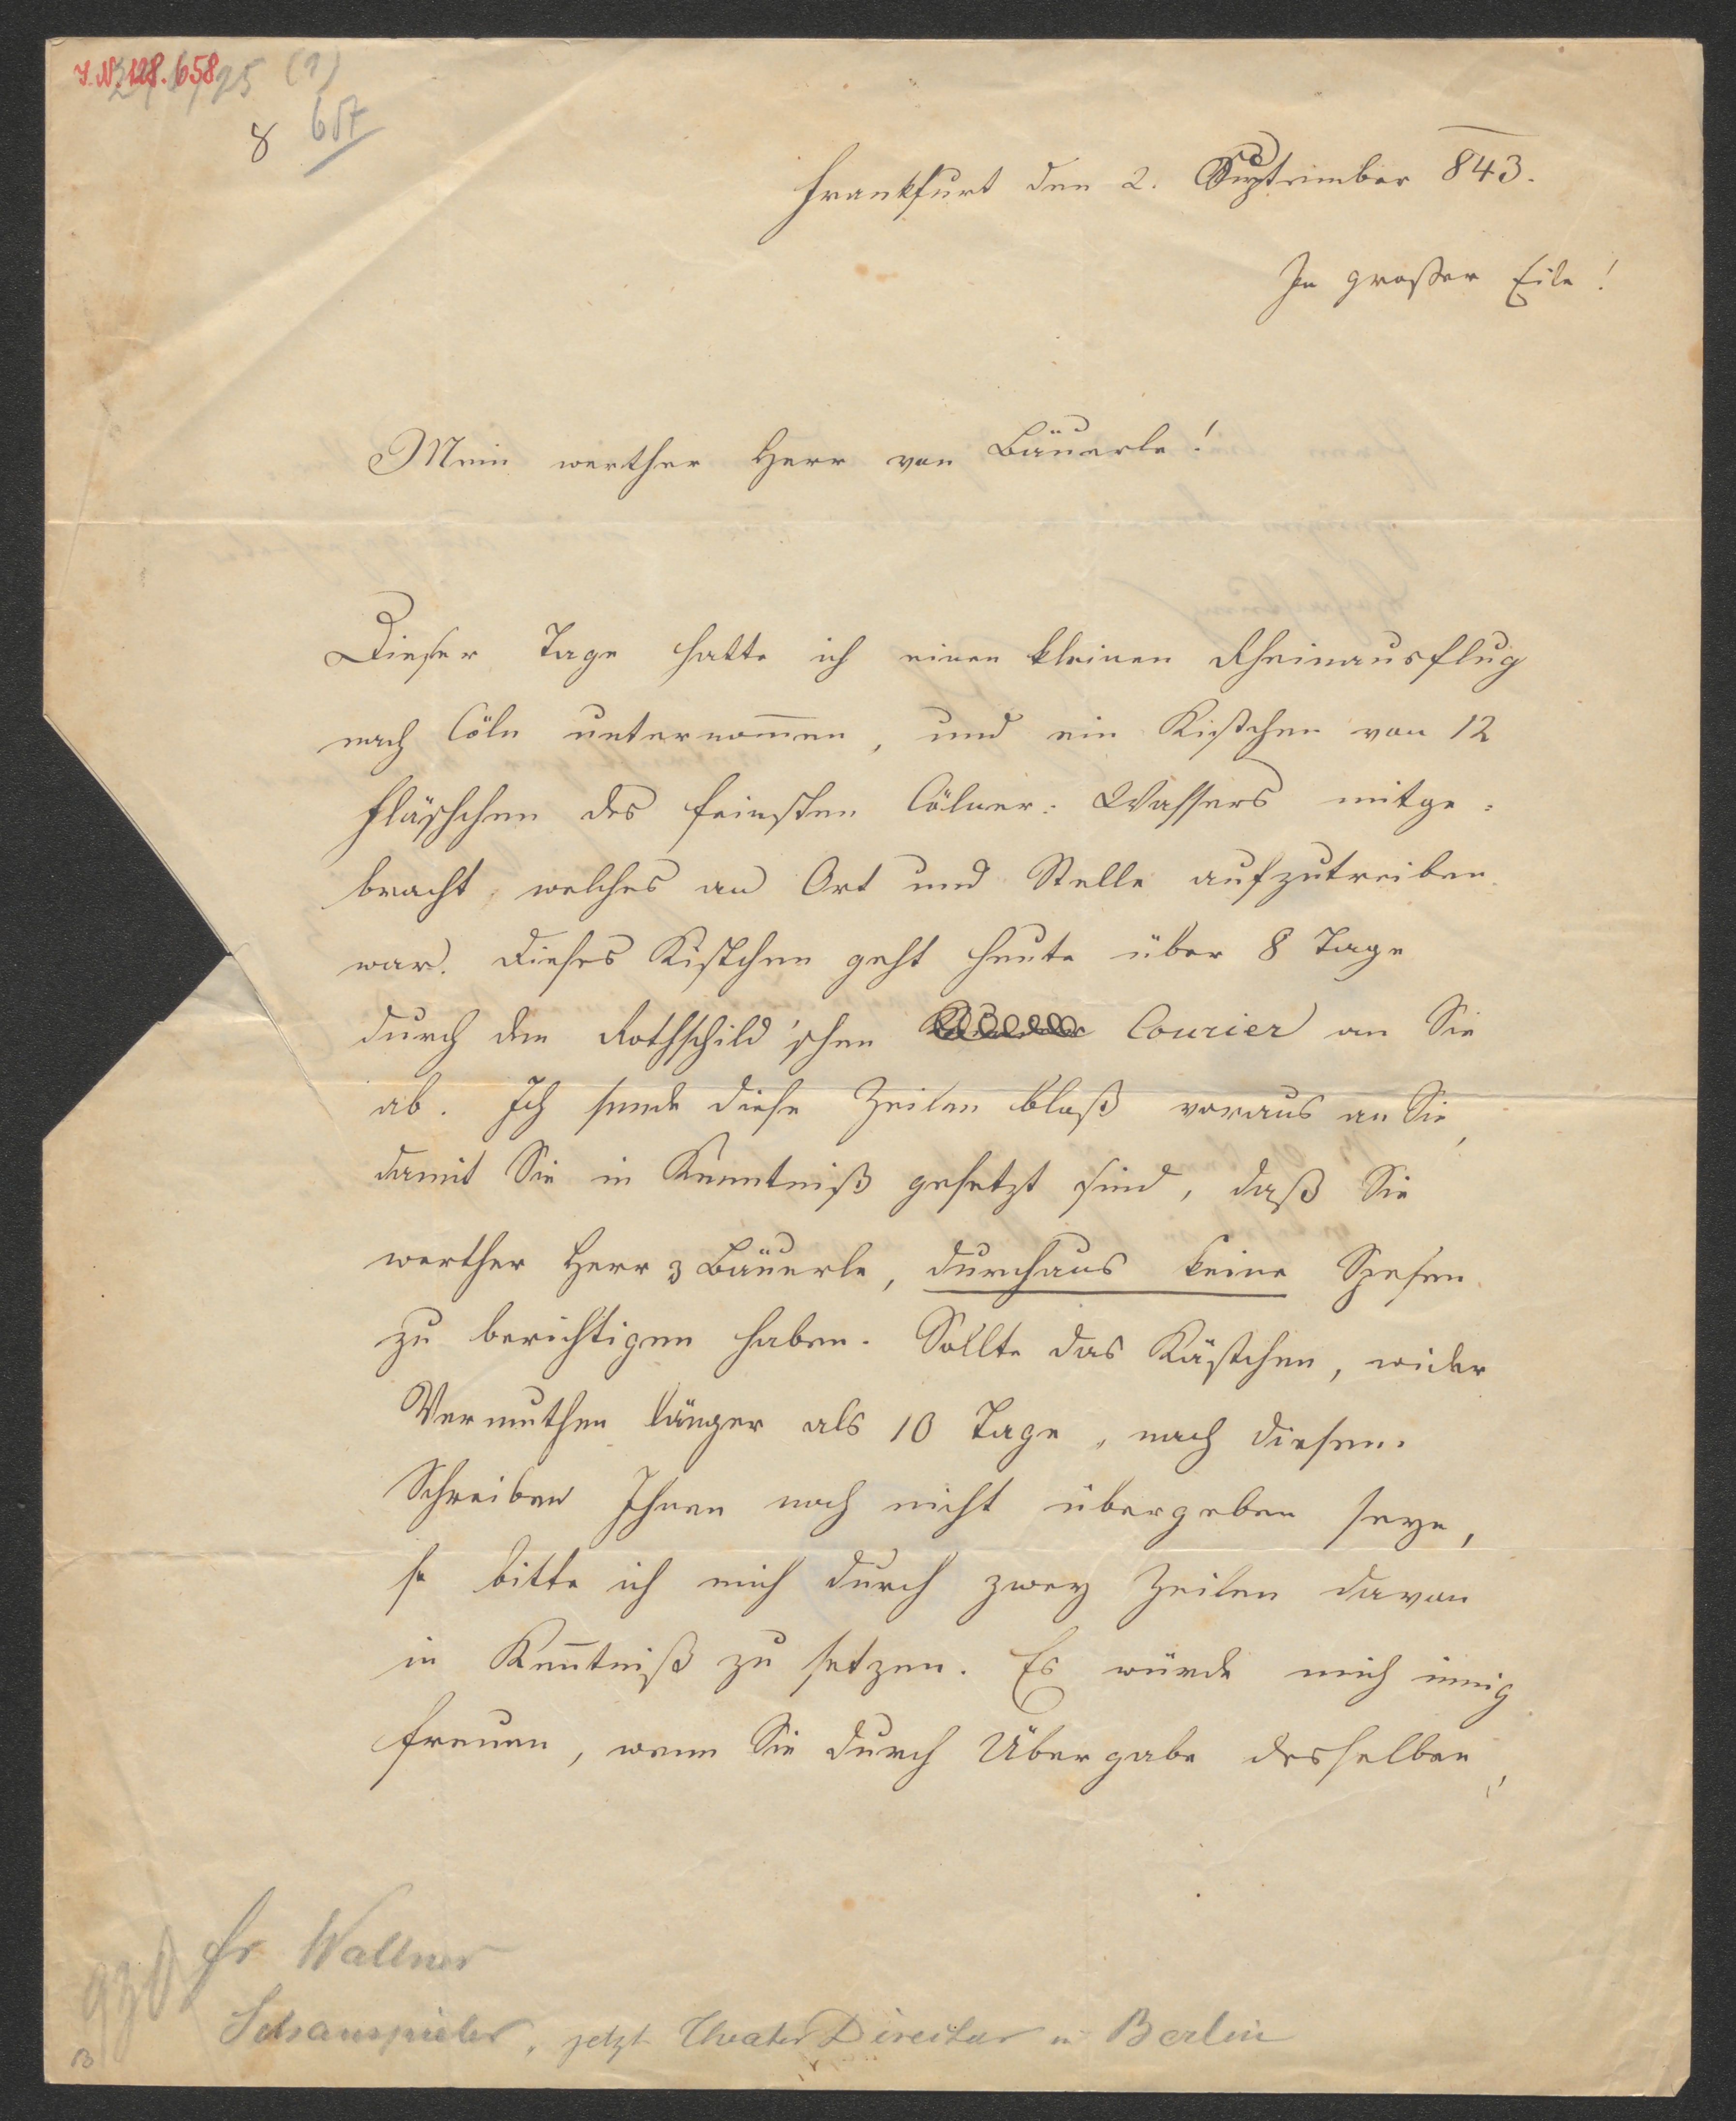 I.N. 128.658
(1)
8 657
Frankfurt den 2. September 843.
In großer Eile!
Mein werther Herr von Bäuerle!
Dieser Tage hatte ich einen kleinen Rheinausflug
nach Cöln unternom̅en, und ein Kistchen von 12
Fläschchen des feinsten Cölner: Wassers mitge:
bracht, welches an Ort und Stelle aufzutreiben
war. Dieses Kistchen geht heute über 8 Tage
durch den Rothschild'schen Courier an Sie
ab. Ich sende diese Zeilen bloß voraus an Sie,
damit Sie in Kenntniß gesetzt sind, daß Sie
werther Herr v Bäuerle, durchaus keine Spesen
zu berichtigen haben. Sollte das Kästchen, wider
Vermuthen länger als 10 Tage, nach diesem
Schreiben Ihnen noch nicht übergeben seyn,
so bitte ich mich durch zwey Zeilen davon
in Ken̅tniß zu setzen. Es würde mich innig
freuen, wenn Sie durch Übergabe desselben,
Fr Wallner
930
Schauspieler, jetzt Theater Director in Berlin
B